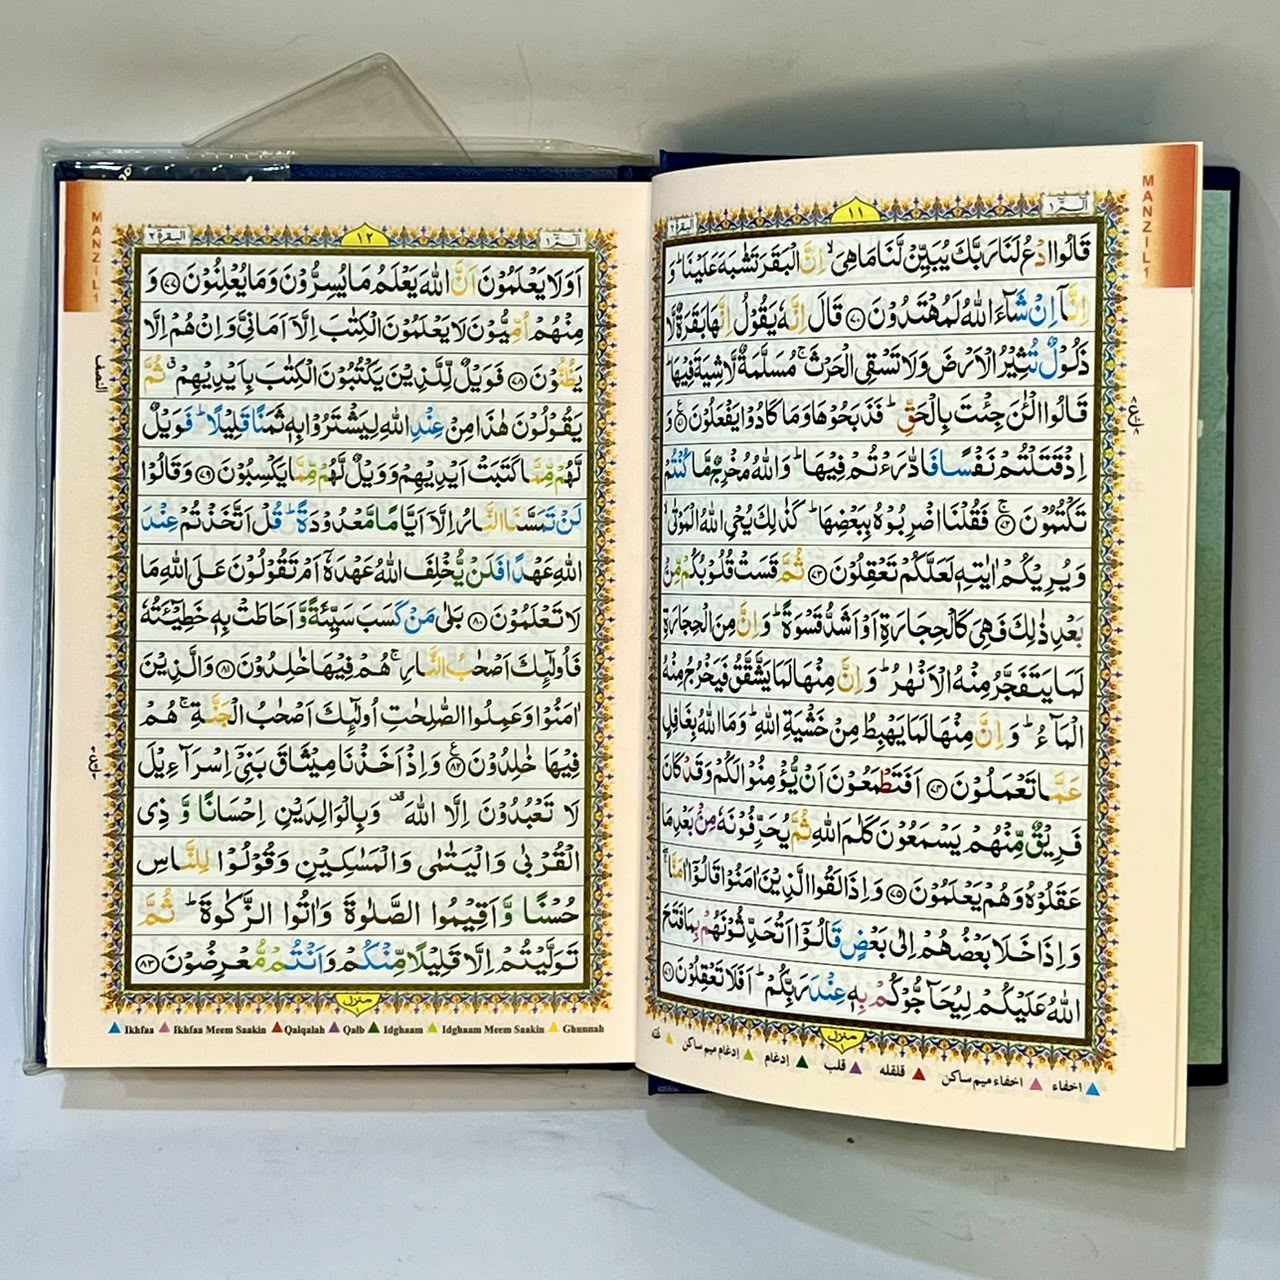 MANZIL 1
البقرة ٢
١١
الٓمّٓ ١
قَالُوا ادْعُ لَنَا رَبَّكَ يُبَيِّنْ لَّنَا مَا هِىَ ۙ اِنَّ الْبَقَرَ تَشٰبَهَ عَلَيْنَا ؕ وَ
اِنَّاۤ اِنْ شَآءَ اللّٰهُ لَمُهْتَدُوْنَ ﴿۷۰﴾ قَالَ اِنَّهٗ يَقُوْلُ اِنَّهَا بَقَرَةٌ لَّا
ذَلُوْلٌ تُثِيْرُ الْاَرْضَ وَلَا تَسْقِى الْحَرْثَ ۚ مُسَلَّمَةٌ لَّا شِيَةَ فِيْهَا ؕ
قَالُوا الْـٰٔنَ جِئْتَ بِالْحَقِّ ؕ فَذَبَحُوْهَا وَمَا كَادُوْا يَفْعَلُوْنَ ﴿۷۱﴾ وَ
اِذْ قَتَلْتُمْ نَفْسًا فَادّٰرَءْتُمْ فِيْهَا ؕ وَاللّٰهُ مُخْرِجٌ مَّا كُنْتُمْ
تَكْتُمُوْنَ ﴿۷۲﴾ فَقُلْنَا اضْرِبُوْهُ بِبَعْضِهَا ؕ كَذٰلِكَ يُحْىِ اللّٰهُ الْمَوْتٰى ۙ
وَيُرِيْكُمْ اٰيٰتِهٖ لَعَلَّكُمْ تَعْقِلُوْنَ ﴿۷۳﴾ ثُمَّ قَسَتْ قُلُوْبُكُمْ مِّنْ
بَعْدِ ذٰلِكَ فَهِىَ كَالْحِجَارَةِ اَوْ اَشَدُّ قَسْوَةً ؕ وَاِنَّ مِنَ الْحِجَارَةِ
لَمَا يَتَفَجَّرُ مِنْهُ الْاَنْهٰرُ ؕ وَاِنَّ مِنْهَا لَمَا يَشَّقَّقُ فَيَخْرُجُ مِنْهُ
الْمَآءُ ؕ وَاِنَّ مِنْهَا لَمَا يَهْبِطُ مِنْ خَشْيَةِ اللّٰهِ ؕ وَمَا اللّٰهُ بِغَافِلٍ
عَمَّا تَعْمَلُوْنَ ﴿۷۴﴾ اَفَتَطْمَعُوْنَ اَنْ يُّؤْمِنُوْا لَكُمْ وَقَدْ كَانَ
فَرِيْقٌ مِّنْهُمْ يَسْمَعُوْنَ كَلٰمَ اللّٰهِ ثُمَّ يُحَرِّفُوْنَهٗ مِنْۢ بَعْدِ مَا
عَقَلُوْهُ وَهُمْ يَعْلَمُوْنَ ﴿۷۵﴾ وَاِذَا لَقُوا الَّذِيْنَ اٰمَنُوْا قَالُوْۤا اٰمَنَّا ۚ
وَاِذَا خَلَا بَعْضُهُمْ اِلٰى بَعْضٍ قَالُوْۤا اَتُحَدِّثُوْنَهُمْ بِمَا فَتَحَ
اللّٰهُ عَلَيْكُمْ لِيُحَآجُّوْكُمْ بِهٖ عِنْدَ رَبِّكُمْ ؕ اَفَلَا تَعْقِلُوْنَ ﴿۷۶﴾
منزل ١
اخفاء اخفاء میم ساکن قلقله قلب إدغام إدغام میم ساکن غنه
MANZIL 1
البقرة ٢
١٢
الٓمّٓ ١
اَوَلَا يَعْلَمُوْنَ اَنَّ اللّٰهَ يَعْلَمُ مَا يُسِرُّوْنَ وَمَا يُعْلِنُوْنَ ﴿۷۷﴾ وَ
مِنْهُمْ اُمِّيُّوْنَ لَا يَعْلَمُوْنَ الْكِتٰبَ اِلَّاۤ اَمَانِىَّ وَاِنْ هُمْ اِلَّا
يَظُنُّوْنَ ﴿۷۸﴾ فَوَيْلٌ لِّلَّذِيْنَ يَكْتُبُوْنَ الْكِتٰبَ بِاَيْدِيْهِمْ ۗ ثُمَّ
يَقُوْلُوْنَ هٰذَا مِنْ عِنْدِ اللّٰهِ لِيَشْتَرُوْا بِهٖ ثَمَنًا قَلِيْلًا ؕ فَوَيْلٌ
لَّهُمْ مِّمَّا كَتَبَتْ اَيْدِيْهِمْ وَوَيْلٌ لَّهُمْ مِّمَّا يَكْسِبُوْنَ ﴿۷۹﴾ وَقَالُوْا
لَنْ تَمَسَّنَا النَّارُ اِلَّاۤ اَيَّامًا مَّعْدُوْدَةً ؕ قُلْ اَتَّخَذْتُمْ عِنْدَ
اللّٰهِ عَهْدًا فَلَنْ يُّخْلِفَ اللّٰهُ عَهْدَهٗۤ اَمْ تَقُوْلُوْنَ عَلَى اللّٰهِ مَا
لَا تَعْلَمُوْنَ ﴿۸۰﴾ بَلٰى مَنْ كَسَبَ سَيِّئَةً وَّاَحَاطَتْ بِهٖ خَطِيْٓـَٔتُهٗ
فَاُولٰٓئِكَ اَصْحٰبُ النَّارِ ۚ هُمْ فِيْهَا خٰلِدُوْنَ ﴿۸۱﴾ وَالَّذِيْنَ
اٰمَنُوْا وَعَمِلُوا الصّٰلِحٰتِ اُولٰٓئِكَ اَصْحٰبُ الْجَنَّةِ ۚ هُمْ
فِيْهَا خٰلِدُوْنَ ﴿۸۲﴾ وَاِذْ اَخَذْنَا مِيْثَاقَ بَنِىْۤ اِسْرَآءِيْلَ
لَا تَعْبُدُوْنَ اِلَّا اللّٰهَ وَبِالْوَالِدَيْنِ اِحْسَانًا وَّذِى
الْقُرْبٰى وَالْيَتٰمٰى وَالْمَسٰكِيْنِ وَقُوْلُوْا لِلنَّاسِ
حُسْنًا وَّاَقِيْمُوا الصَّلٰوةَ وَاٰتُوا الزَّكٰوةَ ؕ ثُمَّ
تَوَلَّيْتُمْ اِلَّا قَلِيْلًا مِّنْكُمْ وَاَنْتُمْ مُّعْرِضُوْنَ ﴿۸۳﴾
منزل ١
Ikhfaa Ikhfaa Meem Saakin Qalqalah Qalb Idghaam Idghaam Meem Saakin Ghunnah